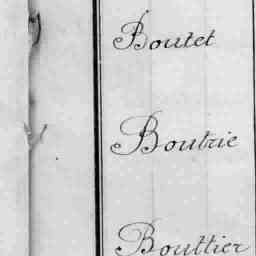 Boutet
Boutrie
Bouttier